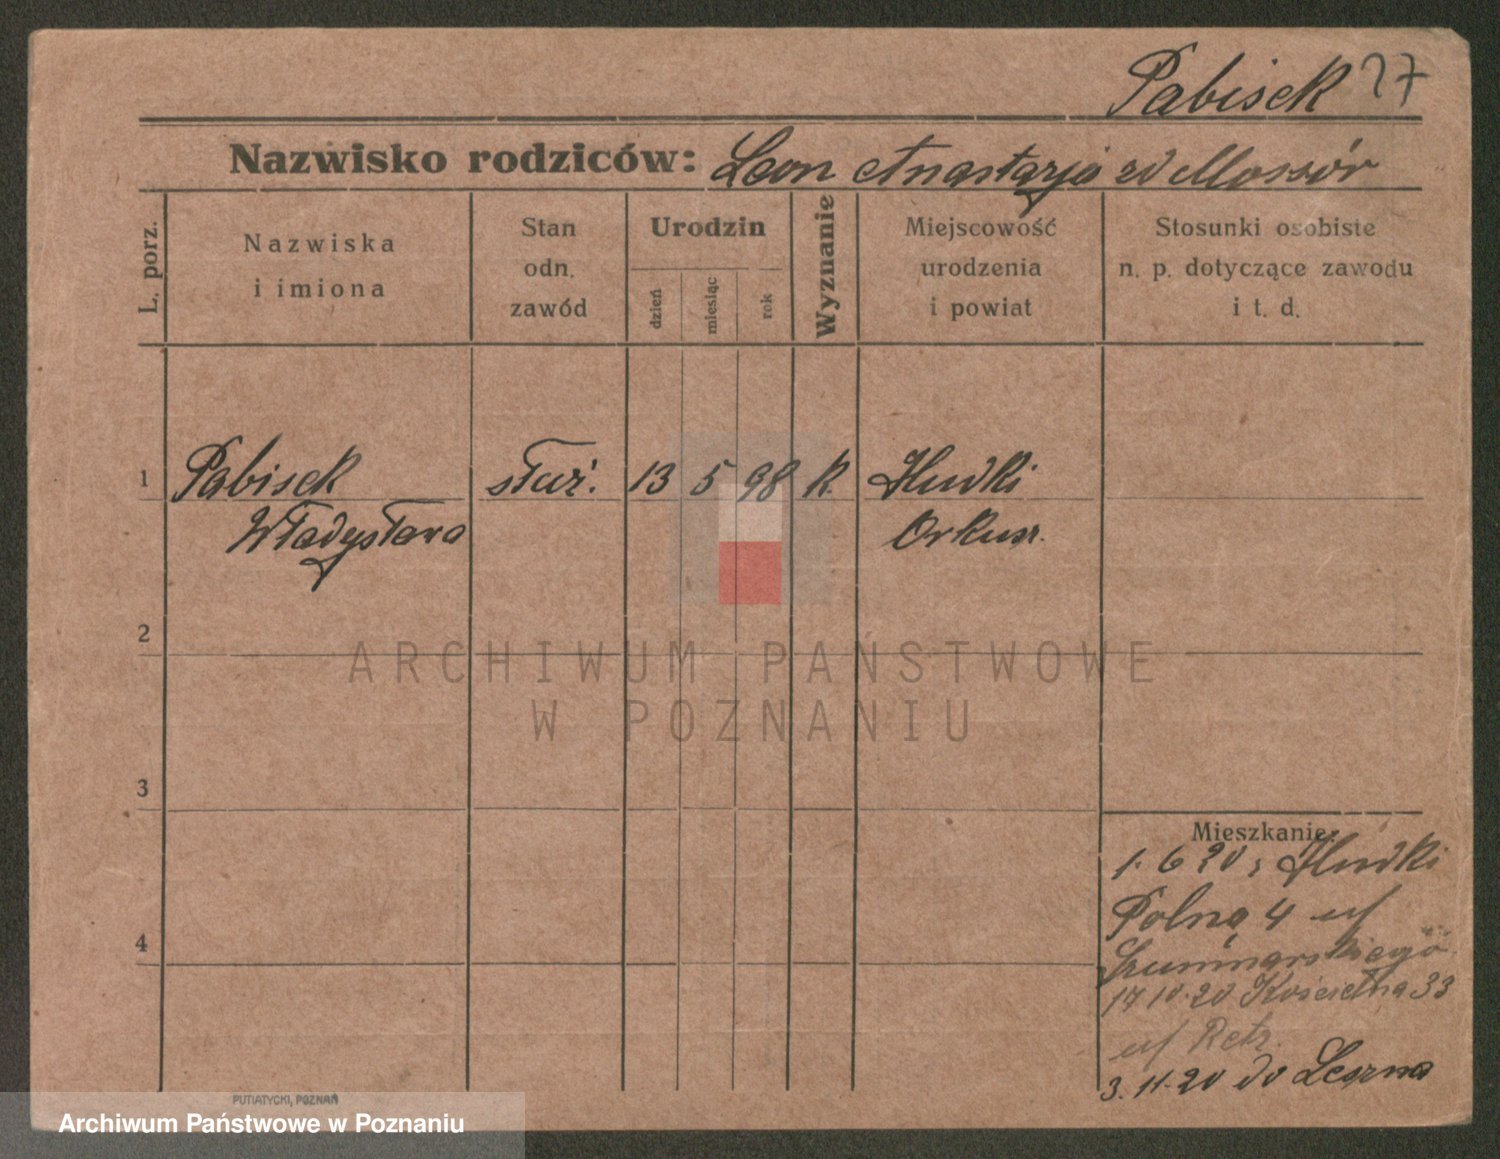 Pabisek 27
Nazwisko rodziców: Leon Anastazja zd Mossór
L. porz.
Nazwiska
i imiona
Stan
odn.
zawód
Urodzin
dzień
miesiąc
rok
Wyznanie
Miejscowość
urodzenia
i powiat
Stosunki osobiste
n. p. dotyczące zawodu
i t. d.
1 Pabisek służ. 13 5 98 k.
Władysława
2
ARCHIWUM PAŃSTWOWE
W POZNANIU
3
4
Mieszkanie:
1. 6 20 z
Polna 4 u/
17 10 20 Kościelna 33
u/ Retz.
3. 11. 20 do Leszna
PUTIATYCKI, POZNAŃ
Archiwum Państwowe w Poznaniu